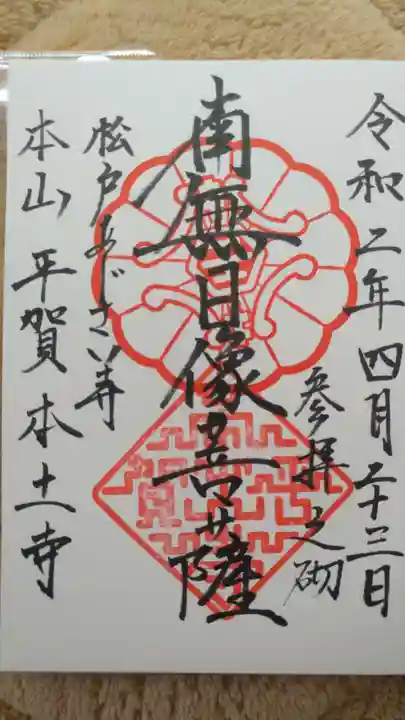 令和二年四月二十三日
参拝之砌
南無日像菩薩
松戸あじさい寺
本山 平賀 本土寺